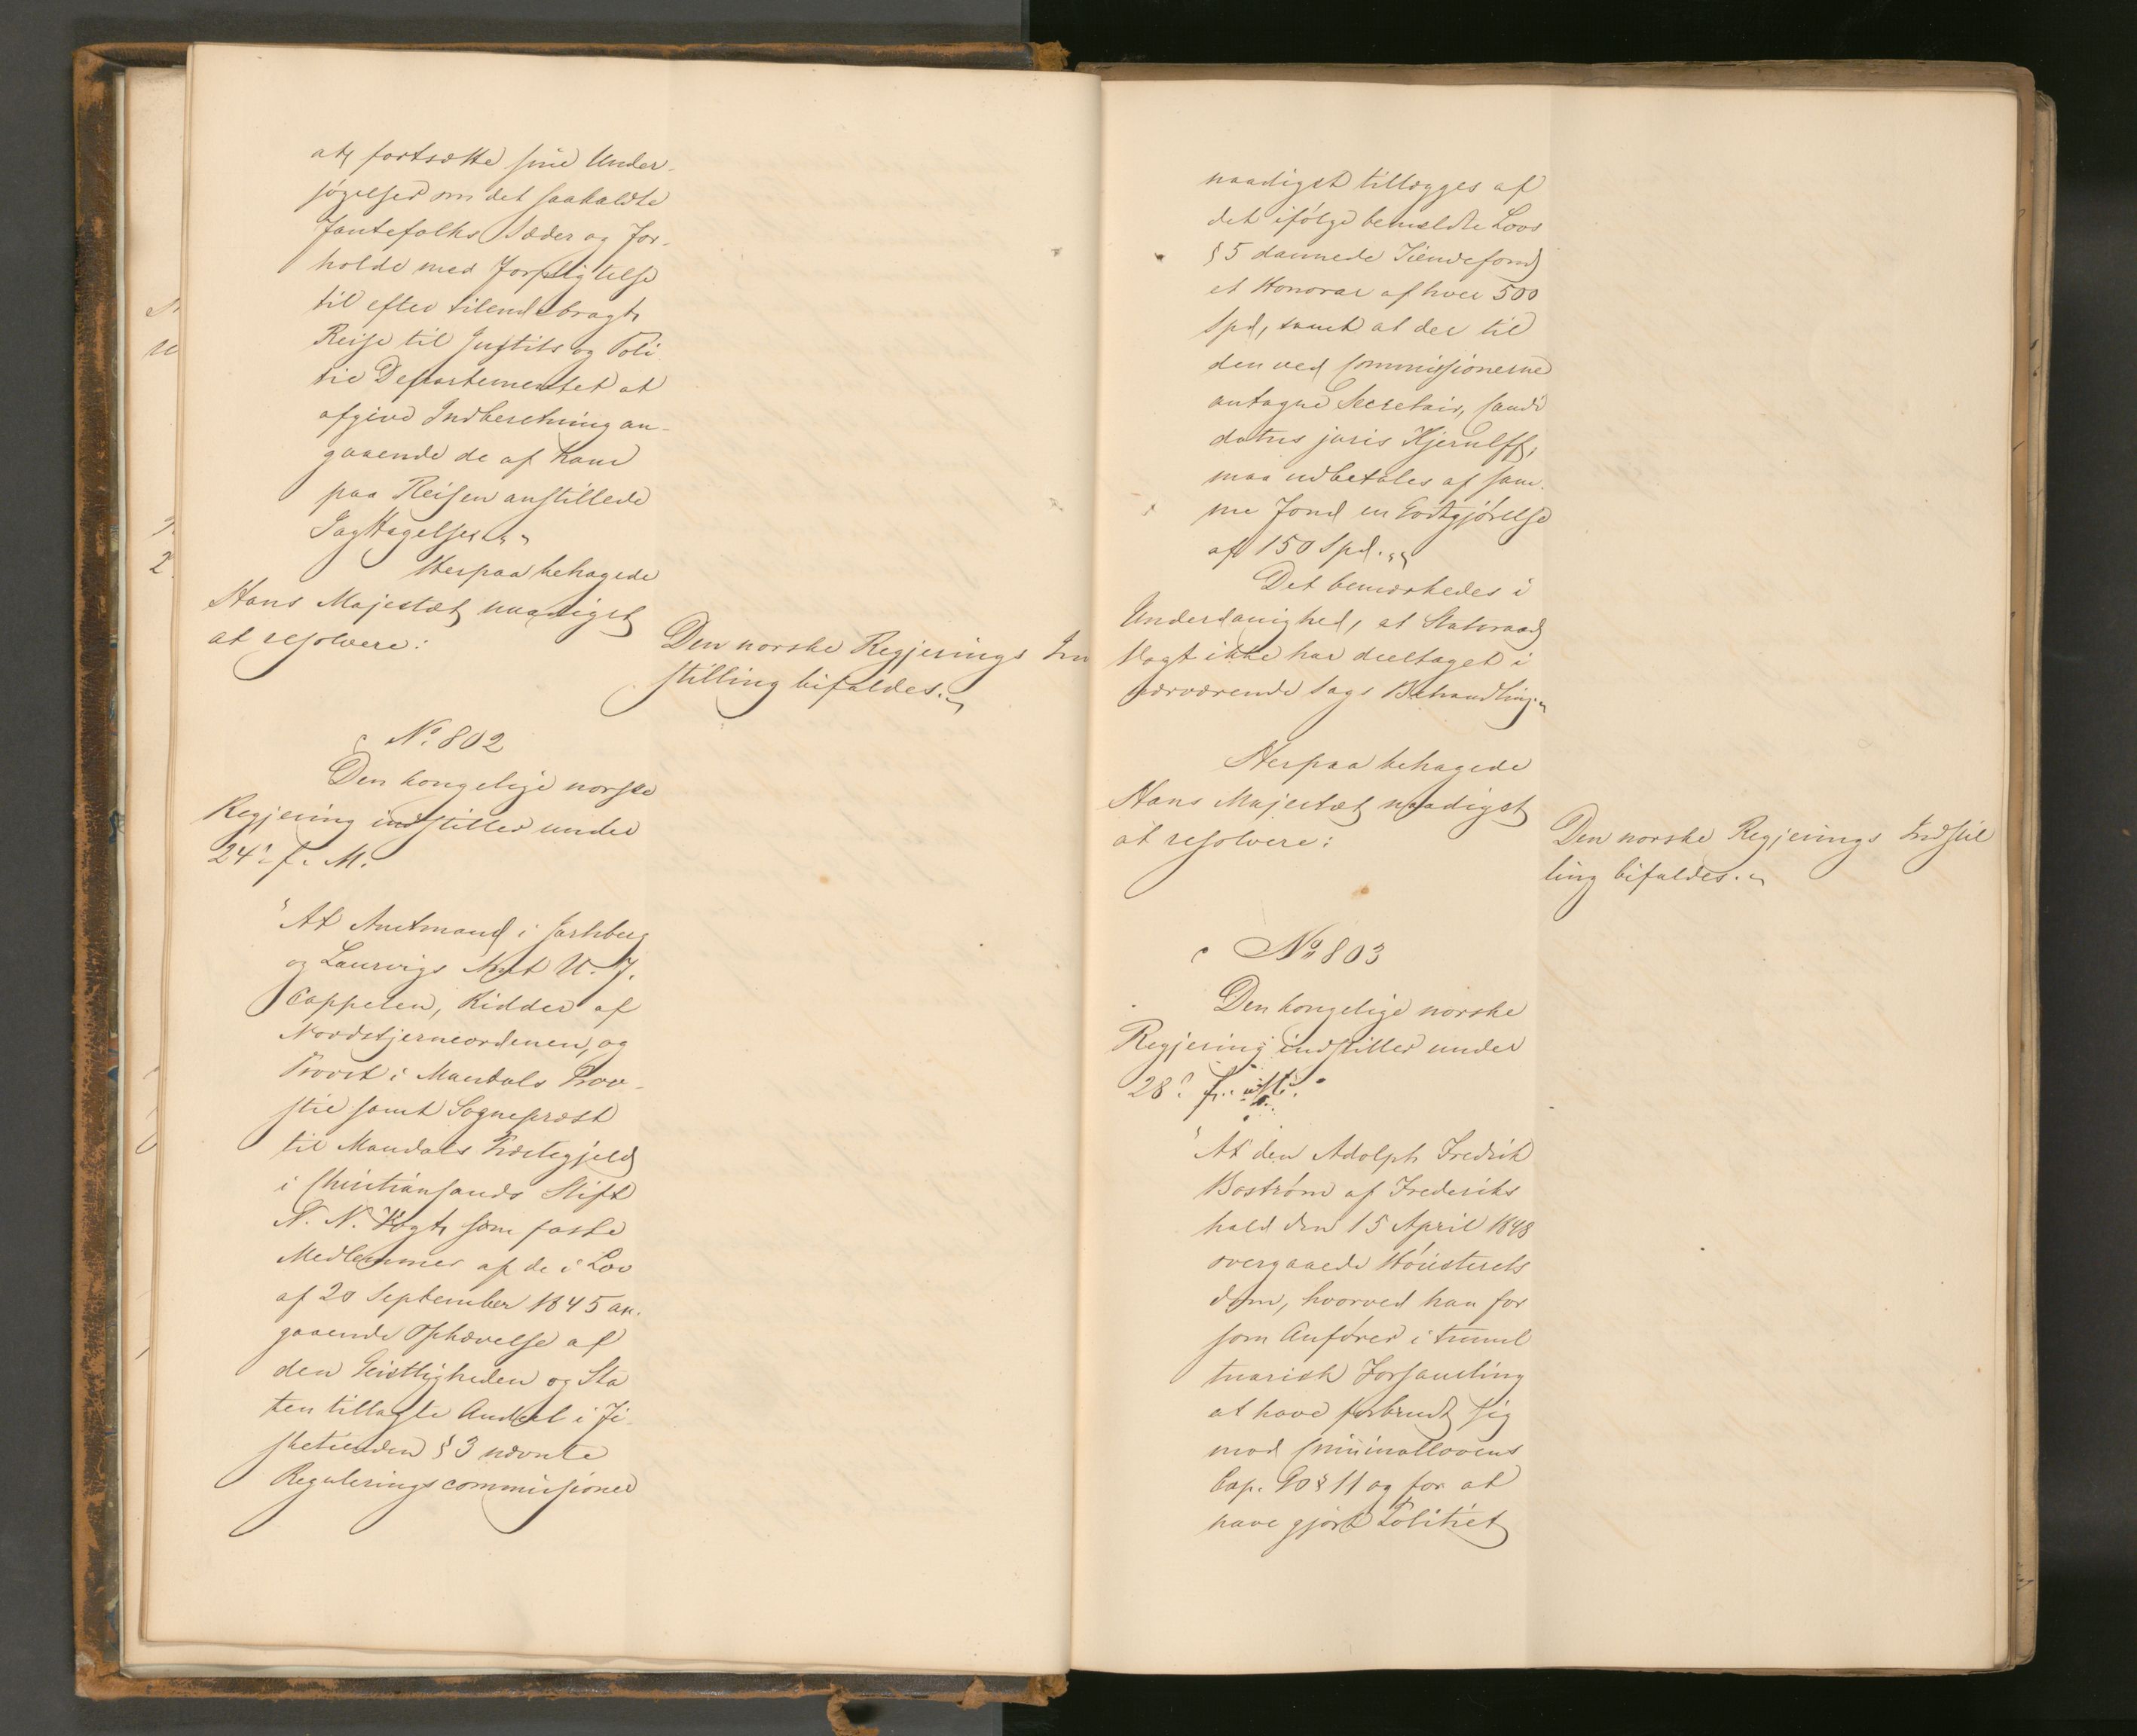 at fortsætte sine Under-
søgelser om det saakaldte
Fantefolks Sæder og For-
holde med Forpligtelse
til efter tilendebragt
Reise til Justits og Poli-
tie Departementet at
afgive Indberetning an-
gaaende de af ham
paa Reisen anstillede
Iagttagelser."
Herpaa behagede
Hans Majestæt naadigst
at resolvere:
Den norske Regjerings In
stilling bifaldes.
No. 802
Den kongelige norske
Regjering indstiller under
24de f. M.
"At Amtmand i Jarlsberg
og Laurvigs Amt U. F.
Cappelen, Ridder af
Nordstjerneordenen, og
Provst i Mandals Prov-
stie samt Sognepræst
til Mandals Præstegjeld
i Christiansands Stift
N. N. Vogt som faste
Medlemmer af de i Lov
af 20 September 1845 an-
gaaende Ophævelse af
den Geistligheden og Sta
ten tillagte Andeel i Fi-
sketienden § 3 nævnte
Reguleringscommissioner
naadigst tillægges af
det ifølge bemeldte Lovs
§ 5 dannede Tiendefond
et Honorar af hver 500
Spd, samt at der til
den ved Commissionerne
antagne Secretair, Candi
datus juris Kjerulff,
maa udbetales af sam-
me Fond en Godtgjørelse
af 150 Spd."
Det bemærkedes i
Underdanighed, at Statsraad
Vogt ikke har deeltaget i
nærværende Sags Behandling.
Herpaa behagede
Hans Majestæt naadigst
at resolvere:
Den norske Regjerings Indstil
ling bifaldes.
No 803
Den kongelige norske
Regjering indstiller under
28de f. M.
"At den Adolph Fredrik
Boström af Frederiks
hald den 15 April 1848
overgaaede Høiesterets
dom, hvorved han for
som Anfører i tumul
tuarisk Forsamling
at have forbrudt sig
mod Criminallovens
Cap. 10 § 11 og for at
have gjort Politiet